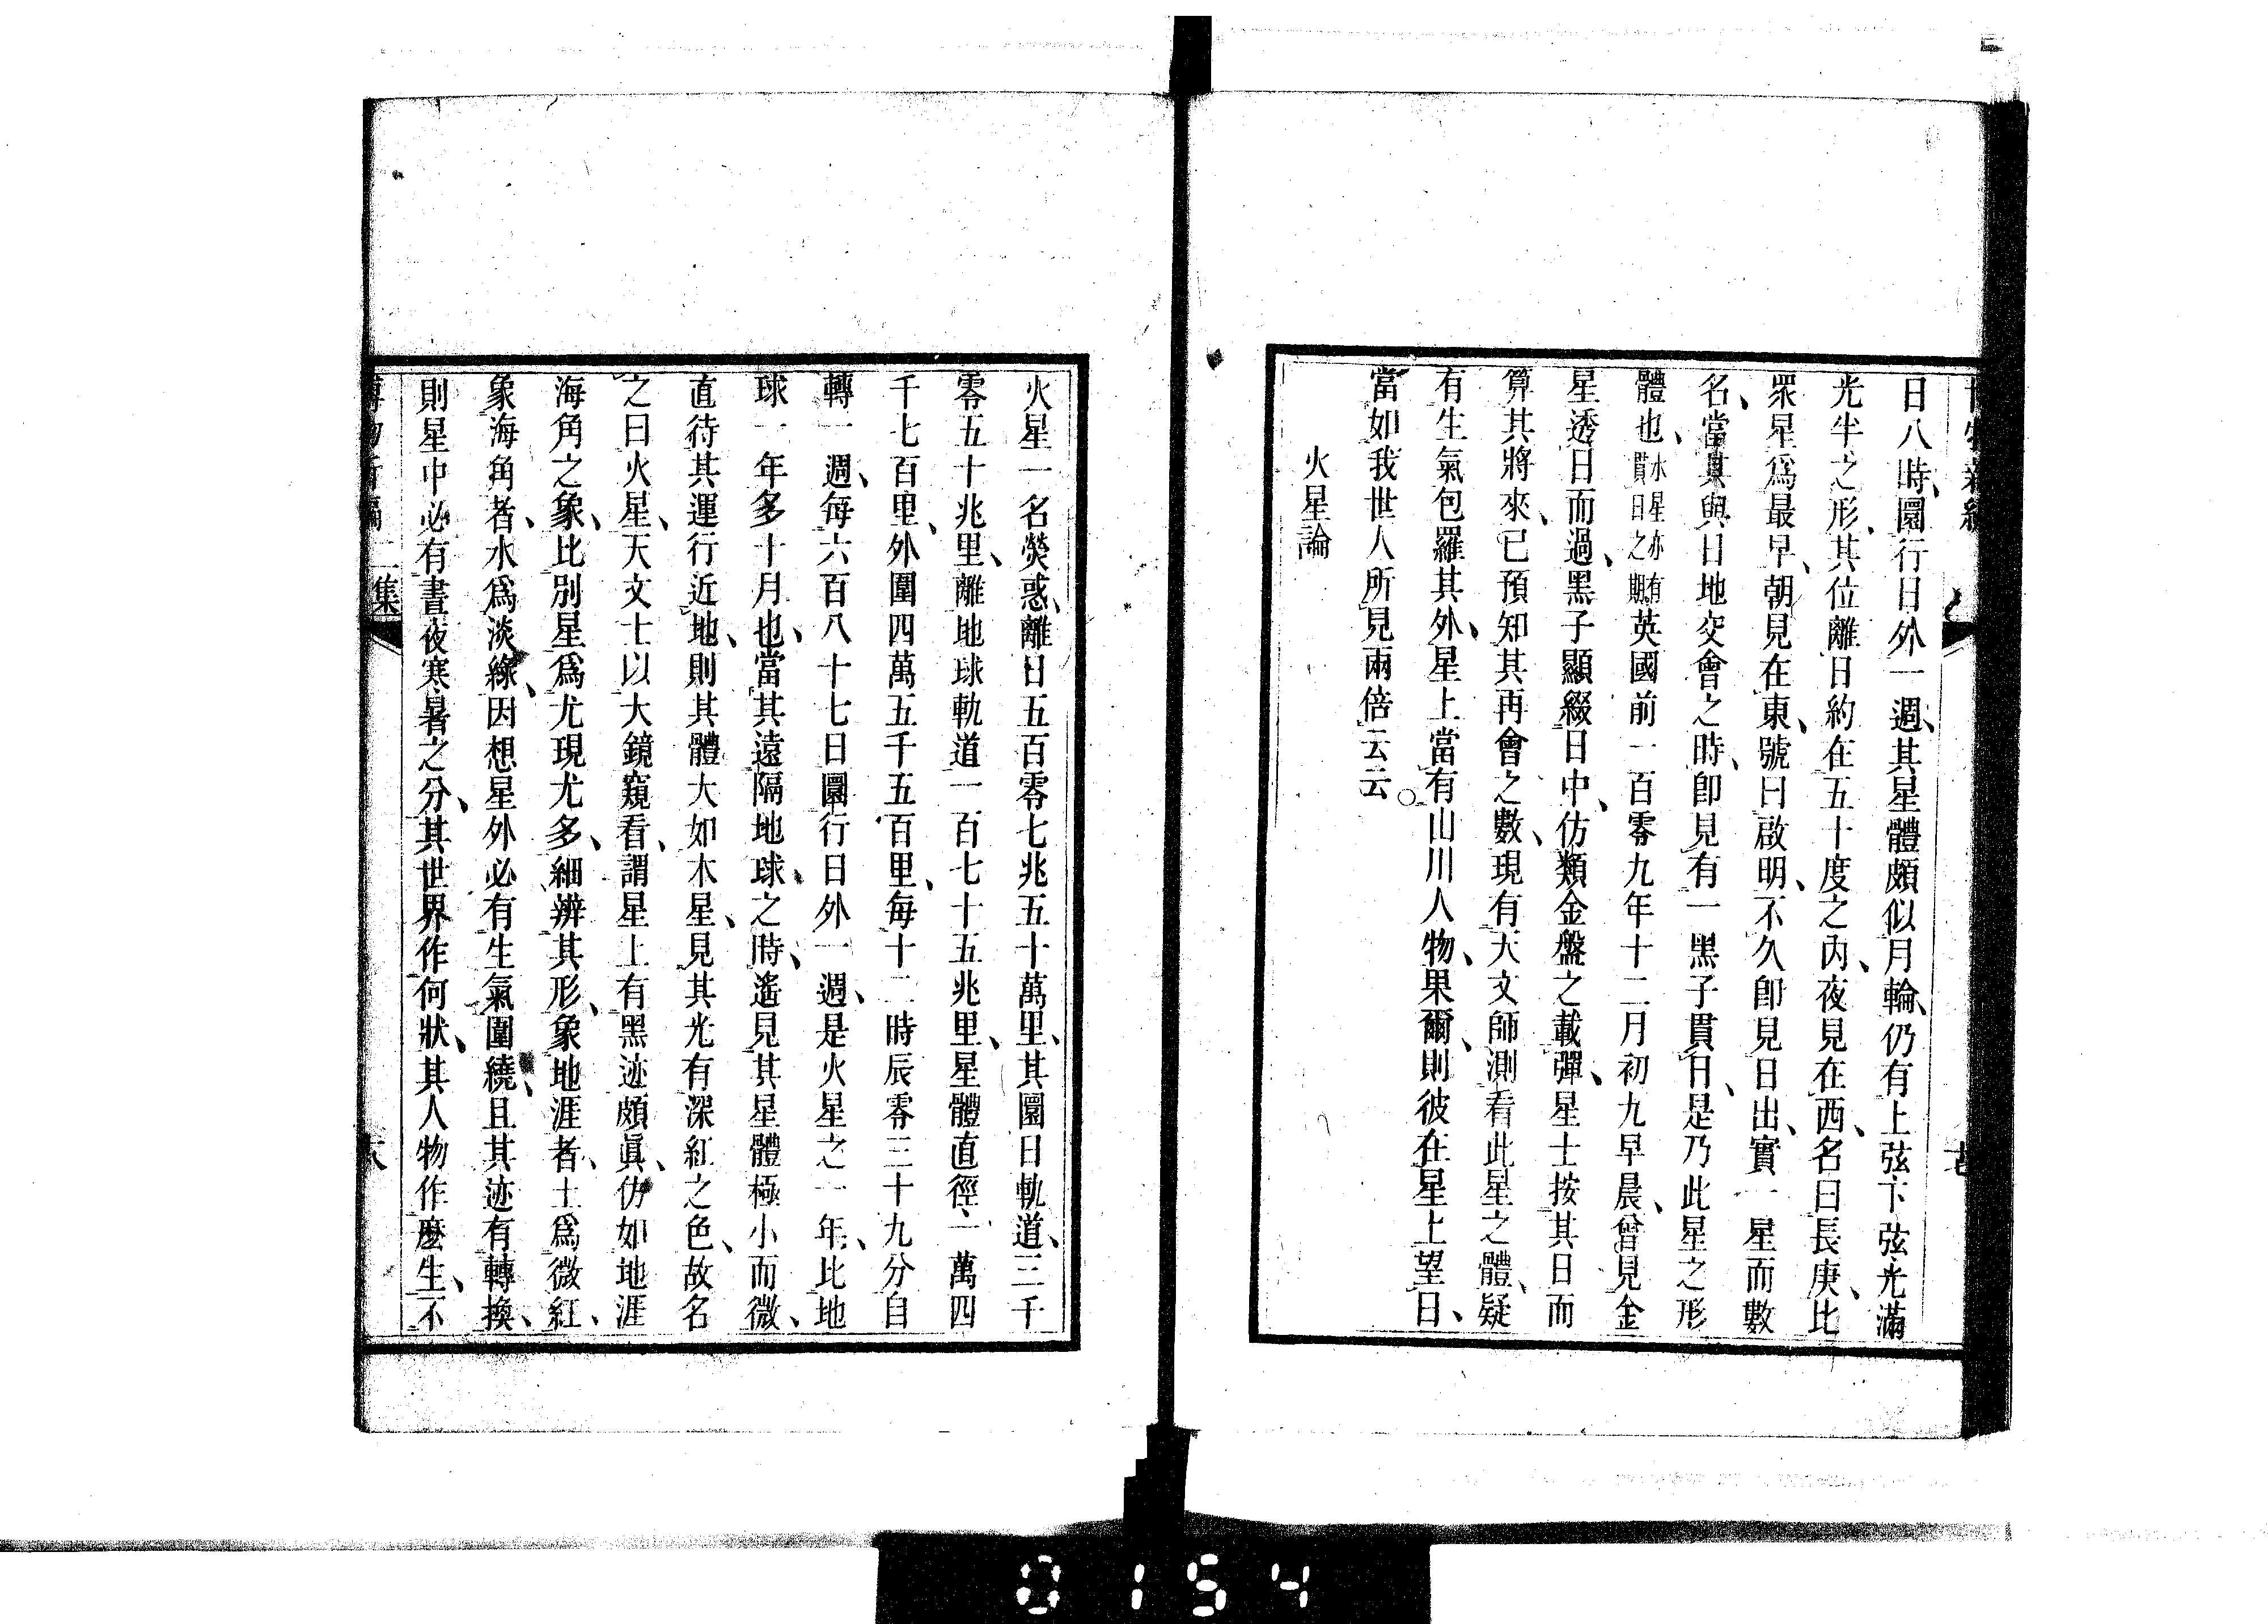 日八時、圜行日外一週、其星體頗似月輪、仍有上弦下弦光滿
光半之形、其位離日約在五十度之內、夜見在西、名曰長庚、比
眾星爲最早、朝見在東、號曰啟明、不久卽見日出、實一星而數
名、當其與日地交會之時、卽見有一黑子貫日、是乃此星之形
體也、水星亦有貫日之期英國前一百零九年十二月初九早晨、曾見金
星透日而過、黑子顯綴日中、仿類金盤之載彈、星士按其日而
算其將來、已預知其再會之數、現有天文師測看此星之體、疑
有生氣包羅其外、星上當有山川人物、果爾、則彼在星上望日、
當如我世人所見兩倍云云。
火星論
火星一名熒惑、離日五百零七兆五十萬里、其圜日軌道、三千
零五十兆里、離地球軌道一百七十五兆里、星體直徑一萬四
千七百里、外圍四萬五千五百里、每十二時辰零三十九分自
轉一週、每六百八十七日圜行日外一週、是火星之一年、比地
球一年多十月也、當其遠隔地球之時、遙見其星體極小而微、
直待其運行近地、則其體大如木星、見其光有深紅之色、故名
之曰火星、天文士以大鏡窺看、謂星上有黑迹頗眞、仿如地涯
海角之象、比別星爲尤現尤多、細辨其形、象地涯者、土爲微紅、
象海角者、水爲淡綠、因想星外必有生氣圍繞、且其迹有轉換、
則星中必有晝夜寒暑之分、其世界作何狀、其人物作麼生、不
二集
0154